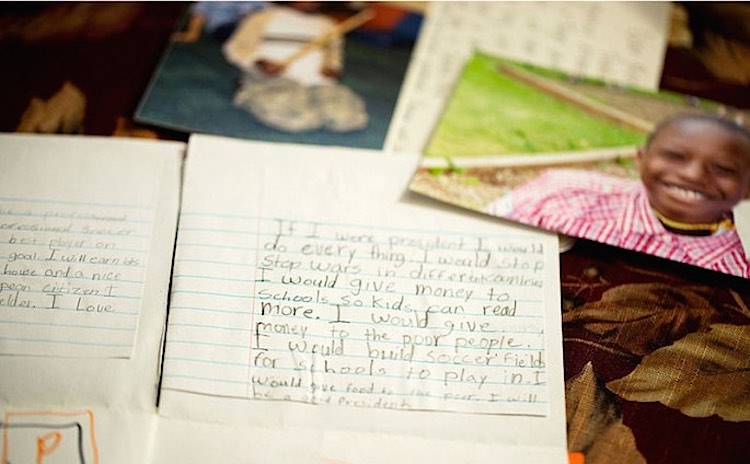 be a professional
professional soccer
best player on
goal. I will earn lots
house and a nice
pean citizen. I
elder. I Love
If I were president I would
do every thing. I would stop
stop wars in different countries
I would give money to
schools so kids can read
more. I would give
money to the poor people.
I would build soccer fields
for schools to play in. I
would give food to the poor. I will
be a good President
P